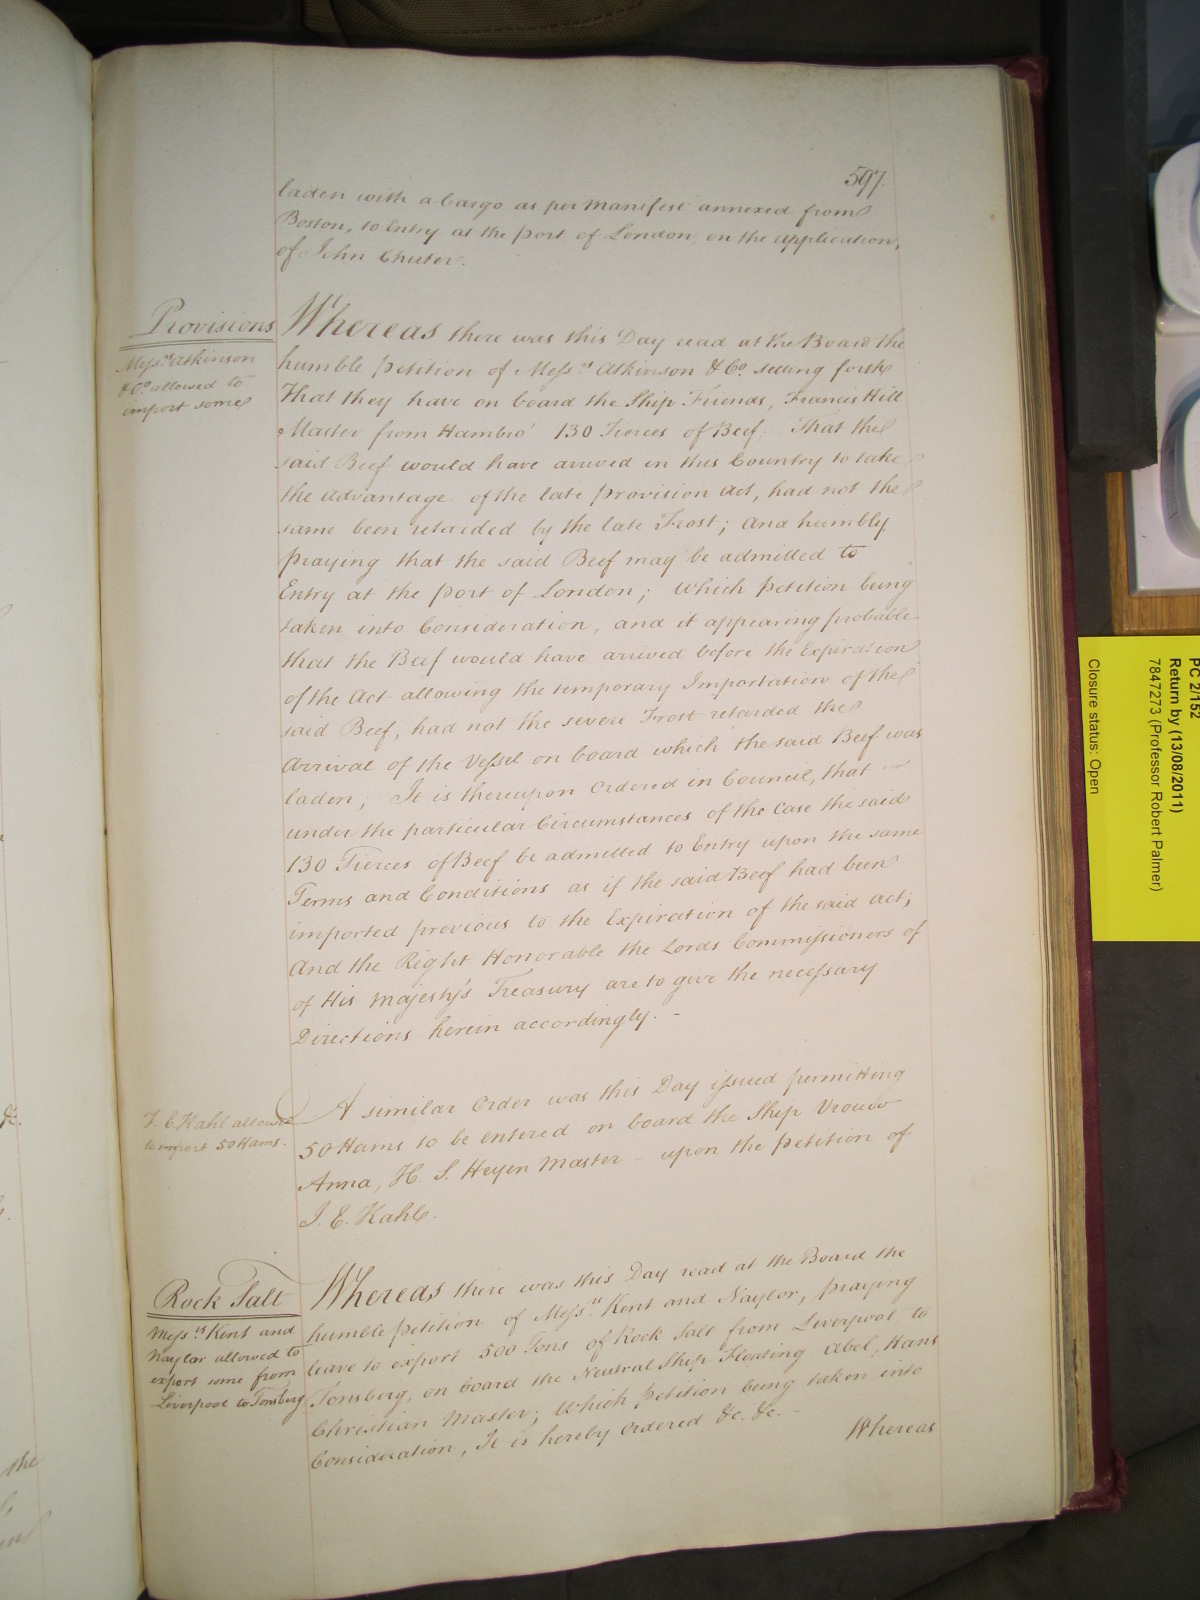 597.
laden with a Cargo as per Manifest annexed from
Boston, to Entry at the Port of London, on the Application,
of John Chester.
Provisions
Messrs Atkinson
& Co. allowed to
import some
Whereas there was this Day read at the Board the
humble Petition of Messrs Atkinson & Co. setting forth
That they have on board the Ship Friends, Francis Hill
Master from Hambro' 130 Tierces of Beef; That the
said Beef would have arrived in this Country to take
the Advantage of the late Provision Act, had not the
same been retarded by the late Frost; And humbly
praying that the said Beef may be admitted to
Entry at the Port of London; Which Petition being
taken into Consideration, and it appearing probable
that the Beef would have arrived before the Expiration
of the Act allowing the temporary Importation of the
said Beef, had not the severe Frost retarded the
Arrival of the Vessel on board which the said Beef was
laden; It is thereupon Ordered in Council, that
under the particular Circumstances of the Case the said
130 Tierces of Beef be admitted to Entry upon the same
Terms and Conditions as if the said Beef had been
imported previous to the Expiration of the said Act;
And the Right Honorable the Lords Commissioners of
of His Majesty's Treasury are to give the necessary
Directions herein accordingly. -
J. E. Kahl allowed
to import 50 Hams.
A similar Order was this Day issued permitting
50 Hams to be entered on board the Ship Vrouw
Anna, H. S. Heyen Master - upon the Petition of
J. E. Kahl.
Rock Salt
Messrs Kent and
Naylor allowed to
export some from
Liverpool to Tonsberg
Whereas there was this Day read at the Board the
humble Petition of Messrs Kent and Naylor, praying
leave to export 500 Tons of Rock Salt from Liverpool to
Tonsberg, on board the Neutral Ship Floating Abel, Hans
Christian Master; Which Petition being taken into
Consideration, It is hereby Ordered &c. &c. -
Whereas
&c.
the
PC 2/152
Return by (13/08/2011)
7847273 (Professor Robert Palmer)
Closure status: Open